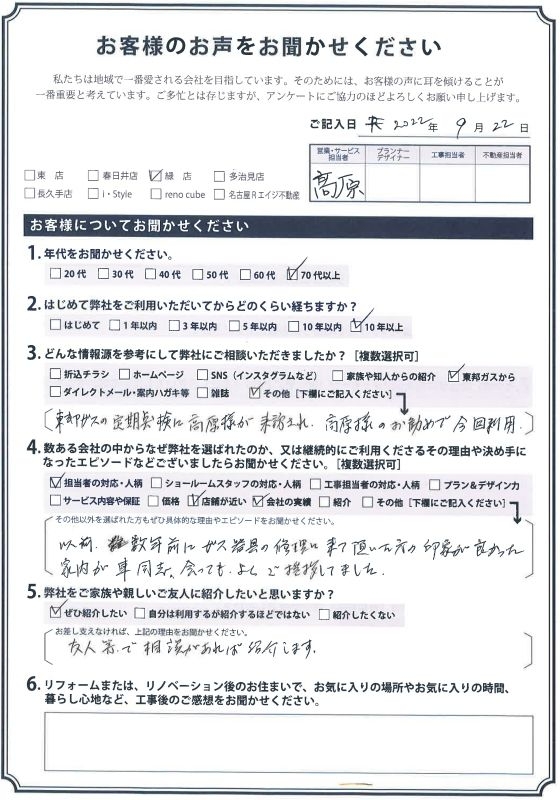 お客様のお声をお聞かせください
私たちは地域で一番愛される会社を目指しています。そのためには、お客様の声に耳を傾けることが
一番重要と考えています。ご多忙とは存じますが、アンケートにご協力のほどよろしくお願い申し上げます。
ご記入日 2022年 9月22日
営業・サービス担当者 プランナーデザイナー 工事担当者 不動産担当者
高原
□東 店 □春日井店 ☑緑 店 □多治見店
□長久手店 □i・Style □reno cube □名古屋Rエイジ不動産
お客様についてお聞かせください
1. 年代をお聞かせください。
□20代 □30代 □40代 □50代 □60代 ☑70代以上
2. はじめて弊社をご利用いただいてからどのくらい経ちますか？
□はじめて □1年以内 □3年以内 □5年以内 □10年以内 ☑10年以上
3. どんな情報源を参考にして弊社にご相談いただきましたか？［複数選択可］
□折込チラシ □ホームページ □SNS（インスタグラムなど） □家族や知人からの紹介 ☑東邦ガスから
□ダイレクトメール・案内ハガキ等 □雑誌 ☑その他［下欄にご記入ください］
東邦ガスの定期点検に高原様が来訪され、高原様のお勧めで今回利用。
4. 数ある会社の中からなぜ弊社を選ばれたのか、又は継続的にご利用くださるその理由や決め手に
なったエピソードなどございましたらお聞かせください。［複数選択可］
☑担当者の対応・人柄 □ショールームスタッフの対応・人柄 □工事担当者の対応・人柄 □プラン＆デザイン力
□サービス内容や保証 □価格 ☑店舗が近い ☑会社の実績 □紹介 □その他［下欄にご記入ください］
その他以外を選ばれた方もぜひ具体的な理由やエピソードをお聞かせください。
以前、数年前にガス器具の修理に来て頂いた方の印象が良かった
家内が車同志。会っても、よくご挨拶してました。
5. 弊社をご家族や親しいご友人に紹介したいと思いますか？
☑ぜひ紹介したい □自分は利用するが紹介するほどではない □紹介したくない
お差し支えなければ、上記の理由をお聞かせください。
友人等で相談があれば紹介します。
6. リフォームまたは、リノベーション後のお住まいで、お気に入りの場所やお気に入りの時間、
暮らし心地など、工事後のご感想をお聞かせください。